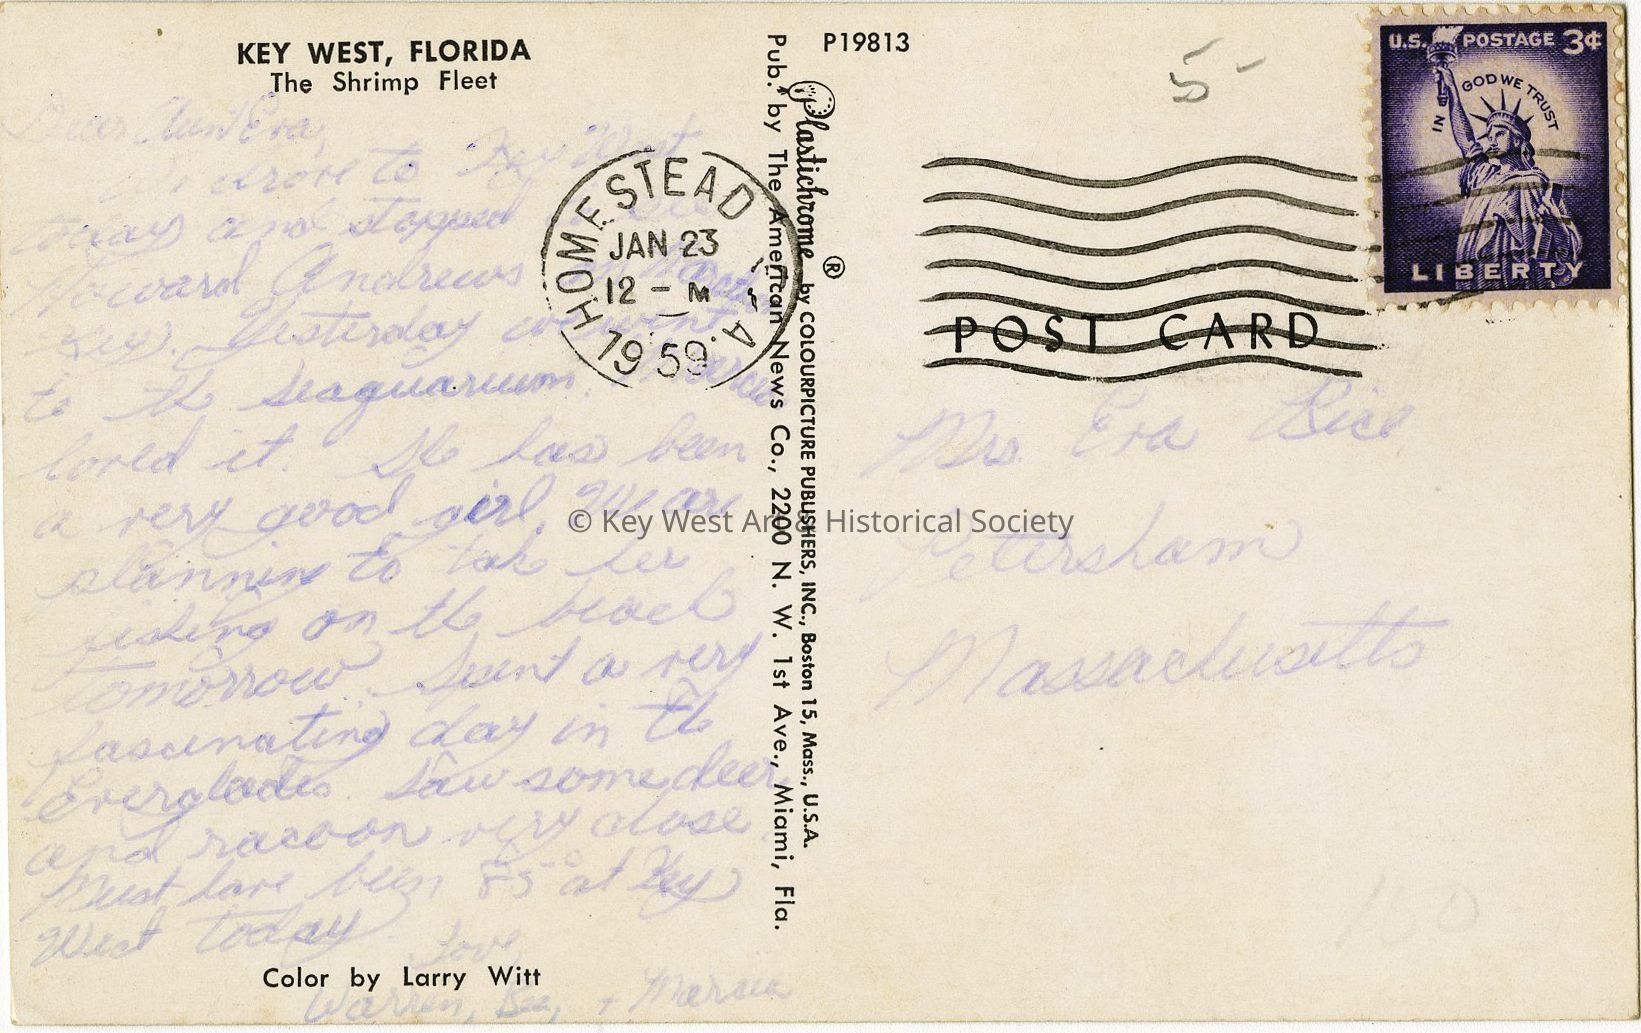 KEY WEST, FLORIDA
The Shrimp Fleet
Dear Aunt Era,
drove to Key West
today and stopped to see
Howard Andrews
Key. Yesterday we went
to the seaquarium. Marcia
loved it. She has been
a very good girl. We are
planning to take her
fishing on the beach
tomorrow. Spent a very
fascinating day in the
Everglades. Saw some deer
and racoon very close
Must have been 85° at Key
West today.
Love,
Warren, Bea, + Marcia
Color by Larry Witt
HOMESTEAD
JAN 23
12 - M
1959
FLA.
P19813
Plastichrome ® by COLOURPICTURE PUBLISHERS, INC., Boston 15, Mass., U.S.A.
Pub. by The American News Co., 2200 N. W. 1st Ave., Miami, Fla.
5-
U.S. POSTAGE 3¢
IN GOD WE TRUST
LIBERTY
POST CARD
Mrs. Era Rice
Petersham
Massachusetts
© Key West Area Historical Society